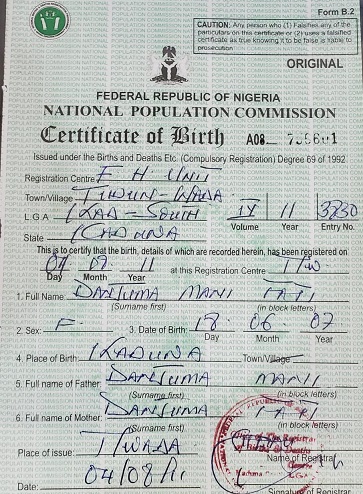 Form B.2
CAUTION: Any person who (1) Falsifies any of the
particulars on this certificate or (2) uses a falsified
certificate as true knowing it to be false is liable to
prosecution
ORIGINAL
FEDERAL REPUBLIC OF NIGERIA
NATIONAL POPULATION COMMISSION
Certificate of Birth A08
Issued under the Births and Deaths Etc. (Compulsory Registration) Degree 69 of 1992
Registration Centre F H UNIT
Town/Village TUDUN-WADA
L G A KAD-SOUTH IV 11 3730
State KADUNA Volume Year Entry No.
This is to certify that the birth, details of which are recorded herein, has been registered on
11 at this Registration Centre T/W
Day Month Year
1. Full Name DANJUMA MANI
(Surname first) (in block letters)
2. Sex: F 3. Date of Birth: 18 06 07
Day Month Year
4. Place of Birth KADUNA Town/Village
5. Full name of Father DANJUMA MANI
(Surname first) (in block letters)
6. Full name of Mother DANJUMA
(Surname first) (in block letters)
Place of issue: T/WADA
Name of Registrar
Date: 04/08/11
Signature of Registrar